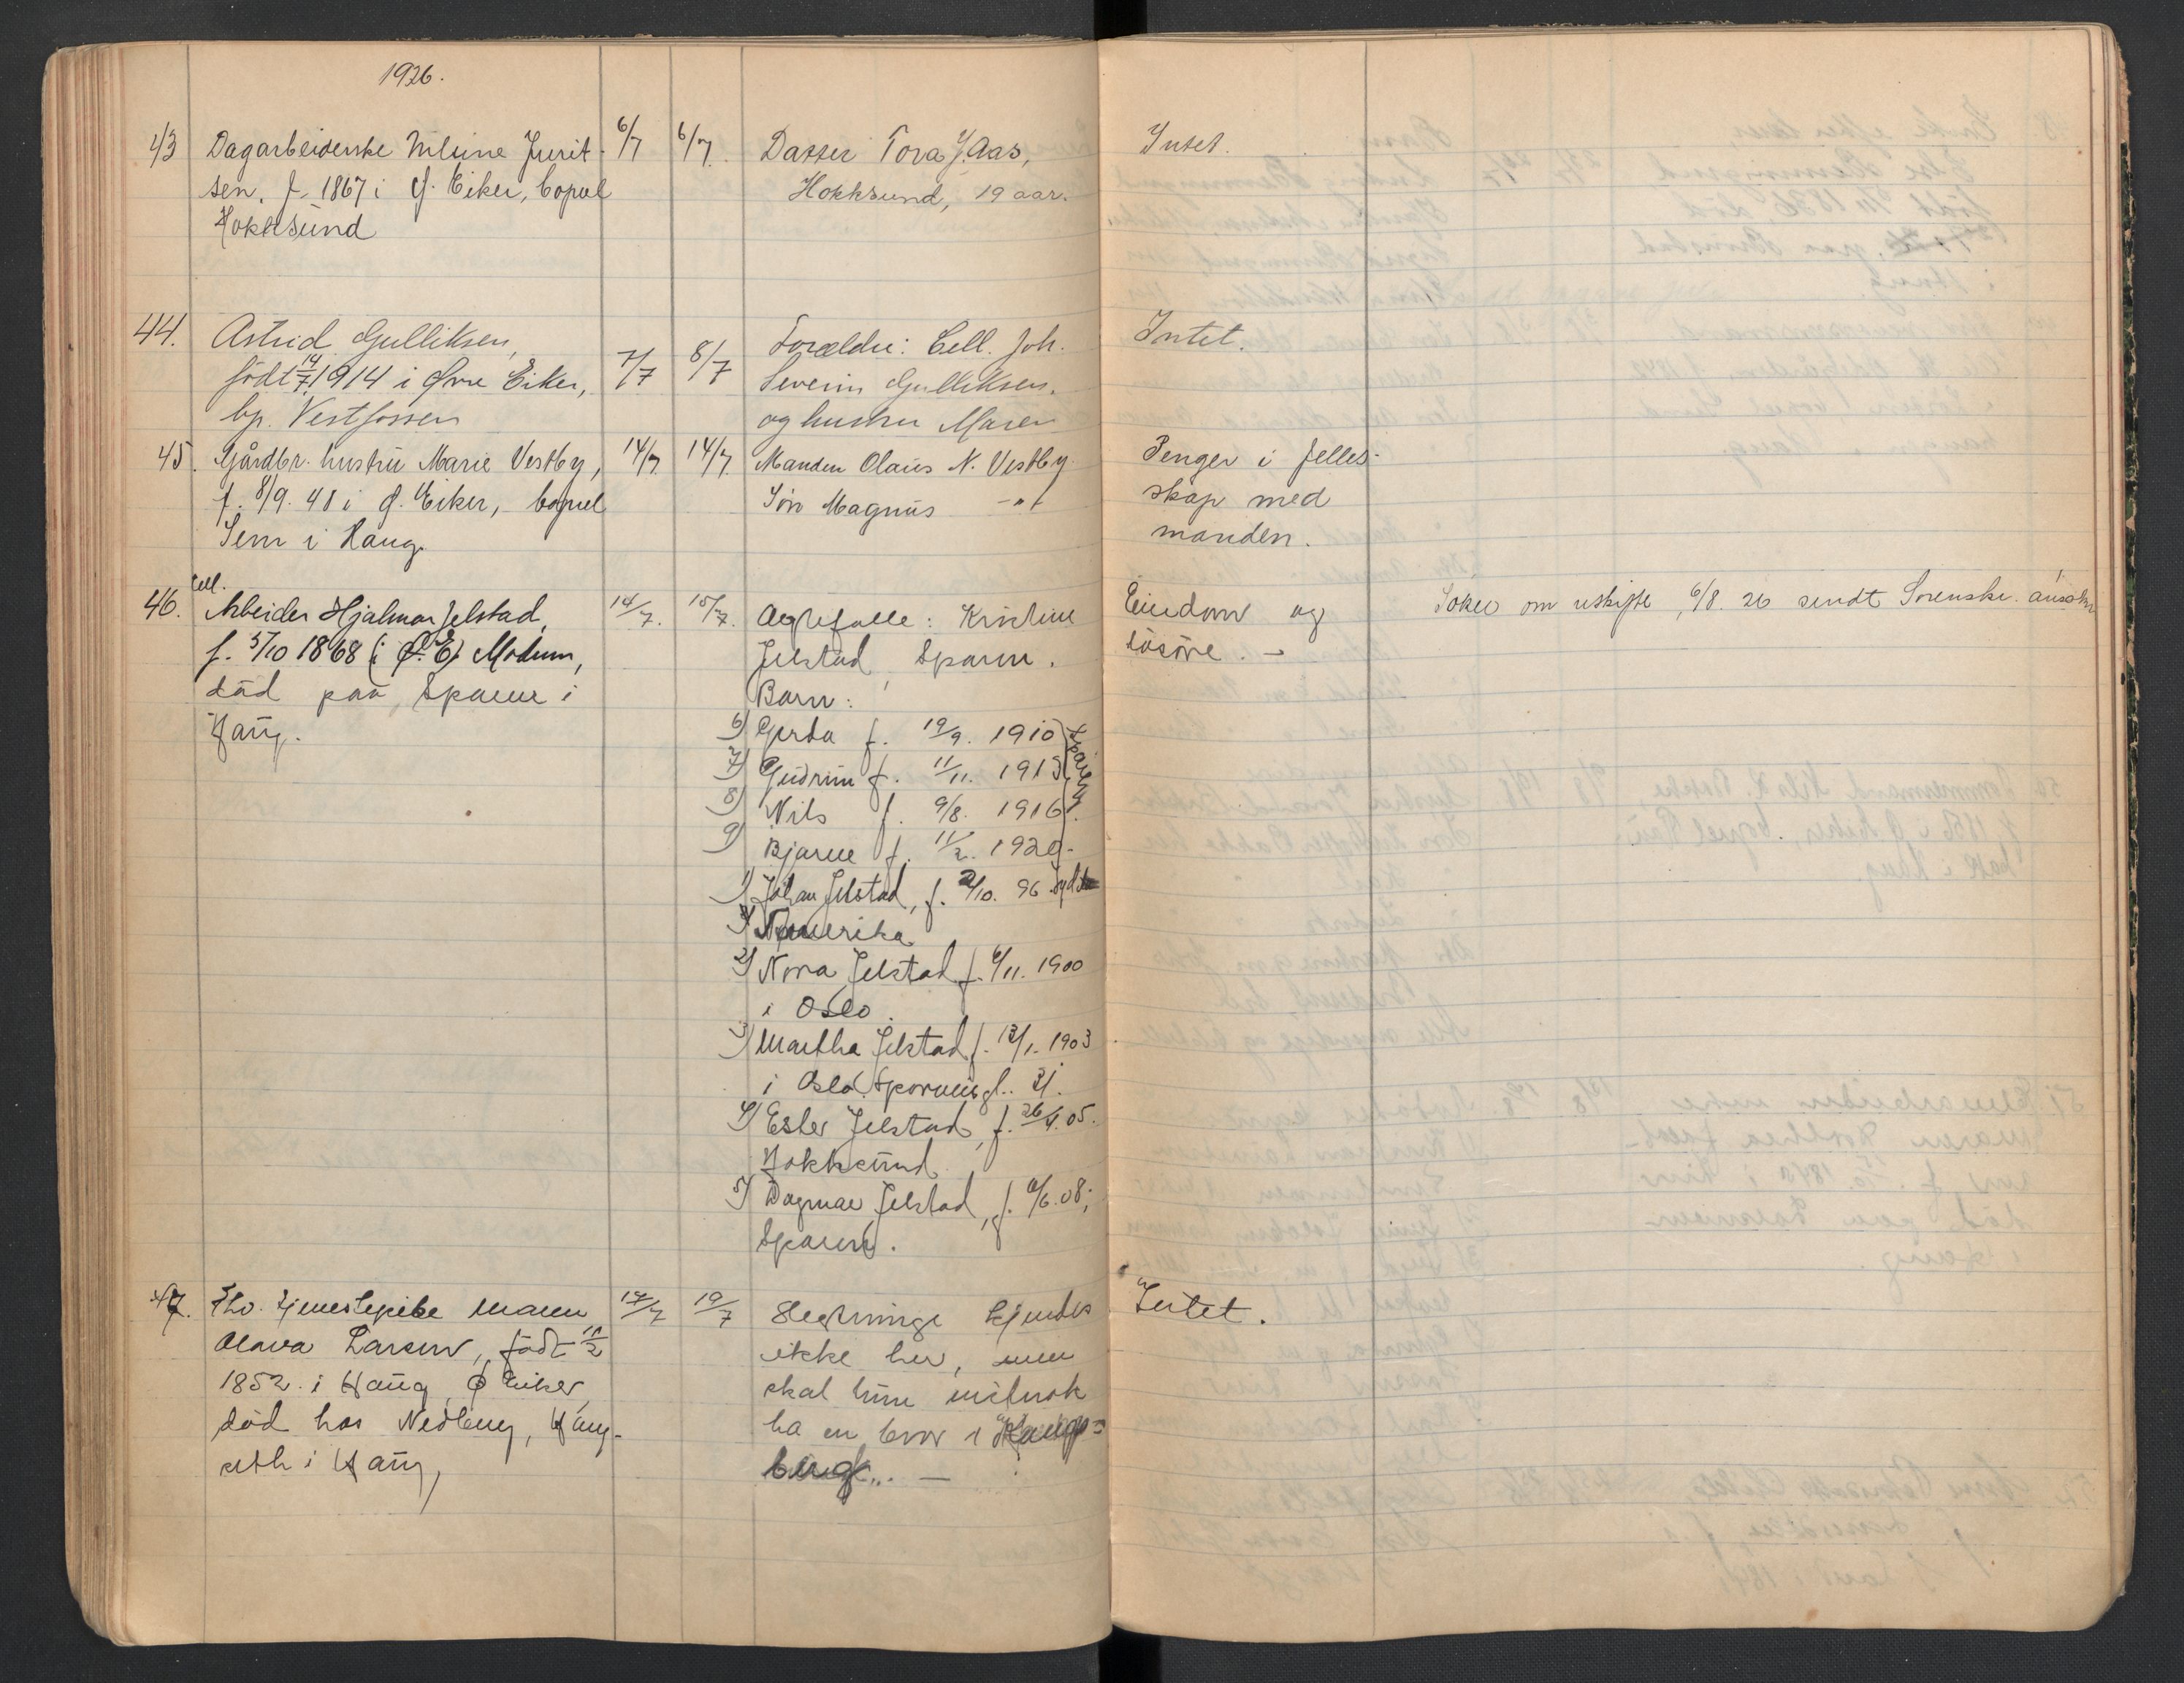 1926.
43 Dagarbeiderske Jurit- 6/7 6/7. Datter Tora J. Aas, Intet.
sen, f. 1867 i Ø. Eiker, bopæl Hokksund, 19 aar.
Hokksund
44. Astrid Gulliksen, Forældre: Cell. Joh. Intet.
født 14/7 1914 i Øvre Eiker, 7/7 8/7 Severin Gulliksen,
bp. Vestfossen og hustru Maren
45. Gårdbr. hustru Marie Vestby, 14/7 14/7 Manden Olaus N. Vestby Penger i felles-
f. 8/9. 48 i Ø. Eiker, bopæl Søn Magnus -"- skap med
Sem i Haug. manden.
Cell.
46. Arbeider Hjalmar Jelstad, 14/7. 15/7. Ægtefelle: Kristine Eiendom og Søker om uskifte, 6/8. 26 sendt Sorenskr.
f. 5/10 1868 (i Ø. E) Modum, Jelstad, Sparen. løsøre. -
død paa Sparen i Barn:
Haug. 6) Gerda f. 19/9. 1910 Sparen
7) Gudrun f. 11/11. 1913
8) Nils f. 9/8. 1916
9) Bjarne f. 11/2. 1920.
1) Johan Jelstad, f. 2/10. 96 Syd
Amerika
2) Nora Jelstad f. 6/11. 1900
i Oslo.
3) Martha Jelstad f. 12/1. 1903
i Oslo. 31.
4) Ester Jelstad, f. 26/4. 05.
Hokksund
5) Dagmar Jelstad, f. 6/6. 08;
Sparen.
47. Fhv. tjenestepike Maren 17/7 19/7 Slegtninge kjendes Intet.
Olava Larsen, født 11/2 ikke her, men
1852 i Haug, Ø Eiker, skal hun
død hos Nedberg, Haug- ha en bror i
seth i Haug, berg. —